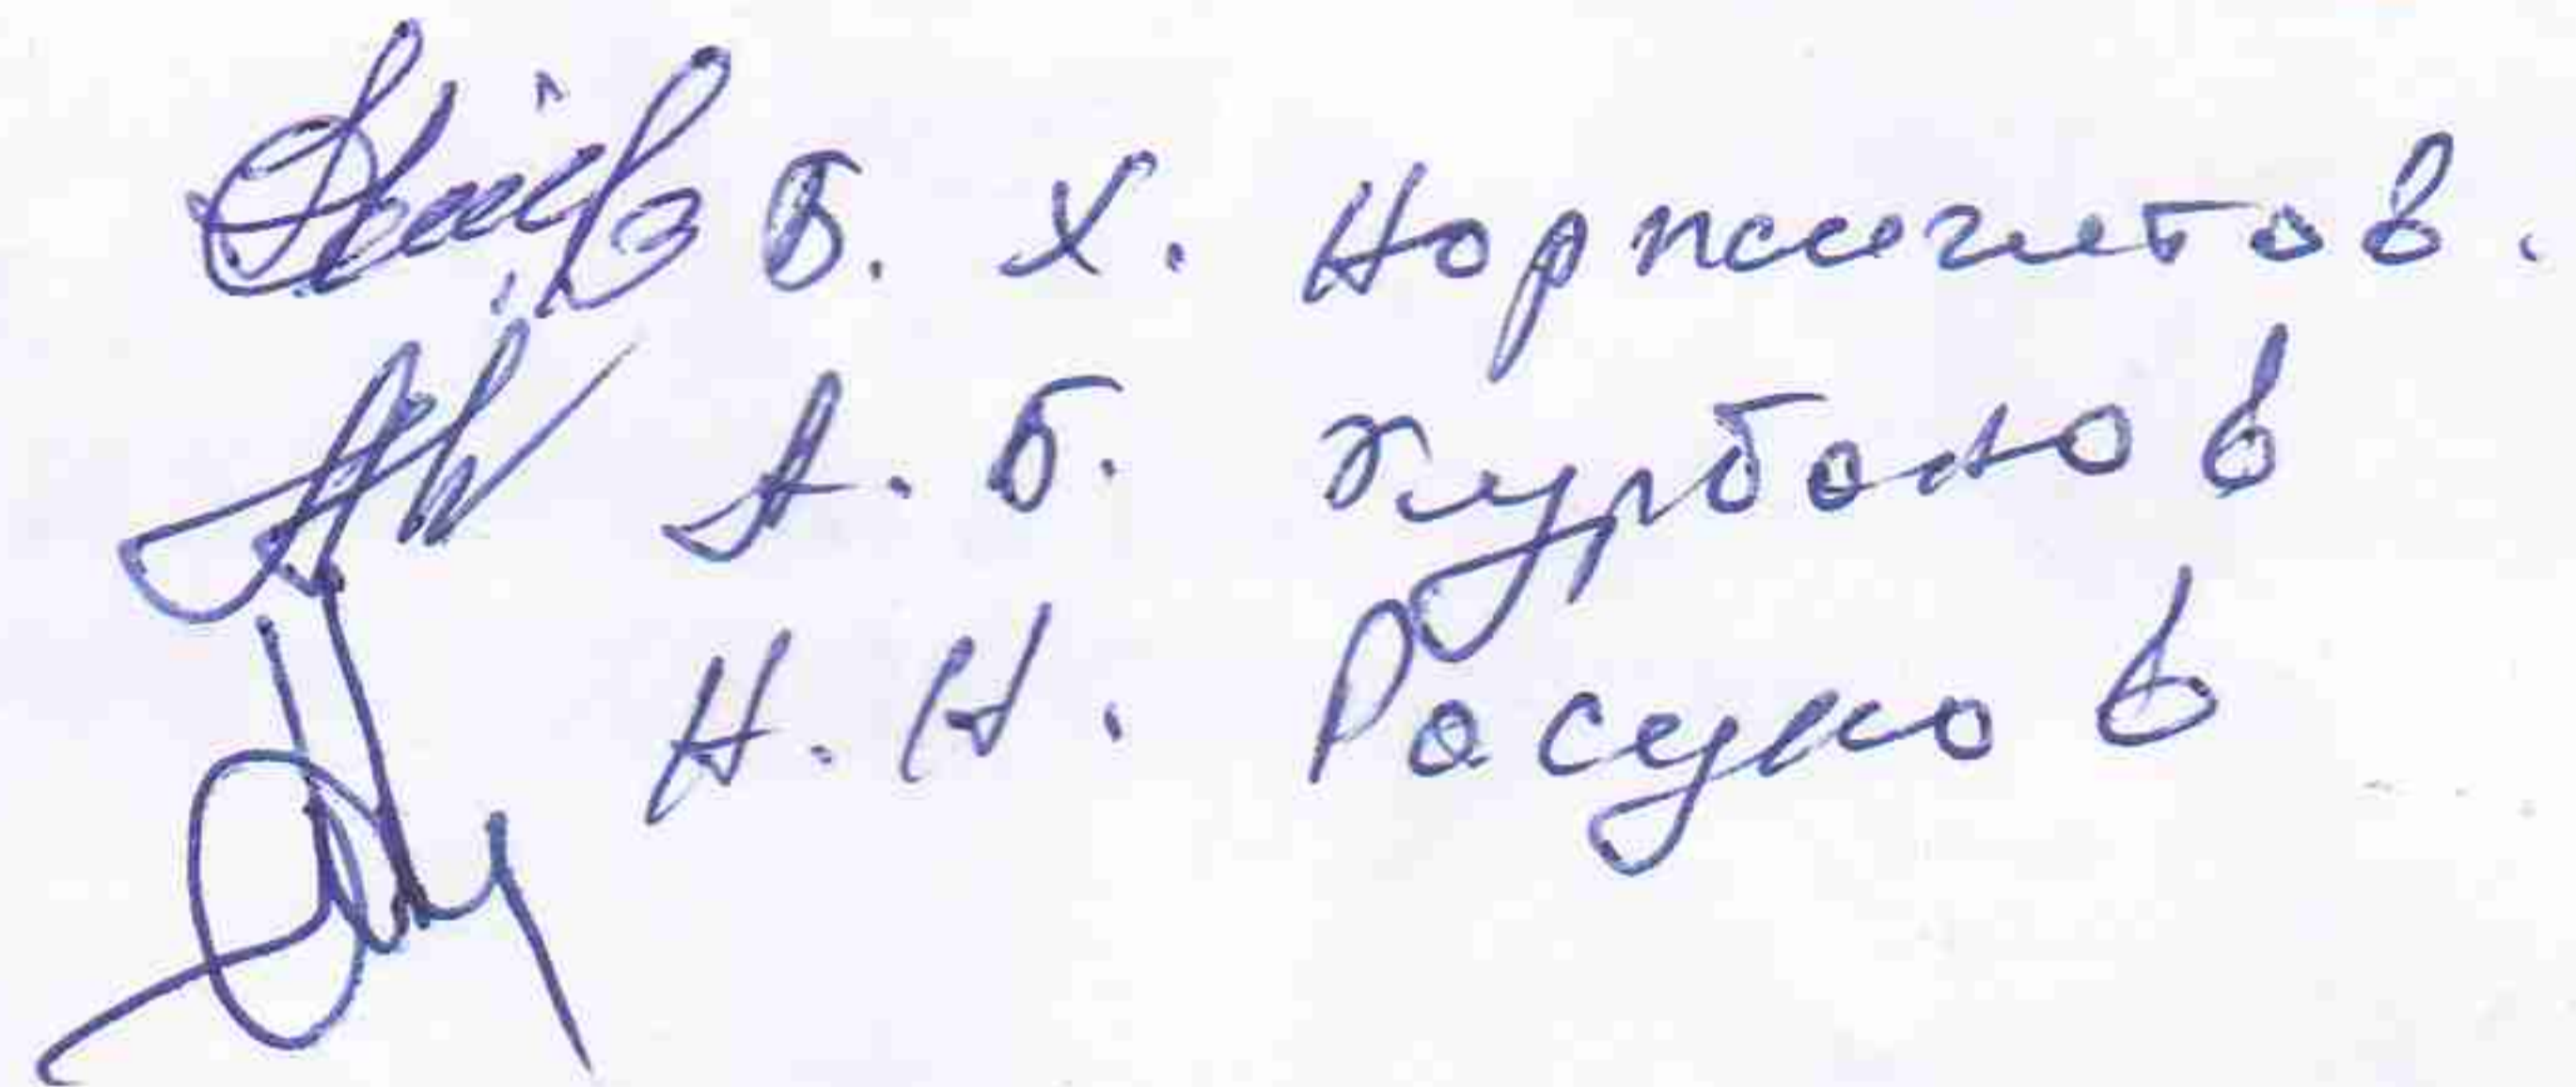 Б. Х. Нормегитов.
А. Б. Қурбонов
Н. Н. Расулов